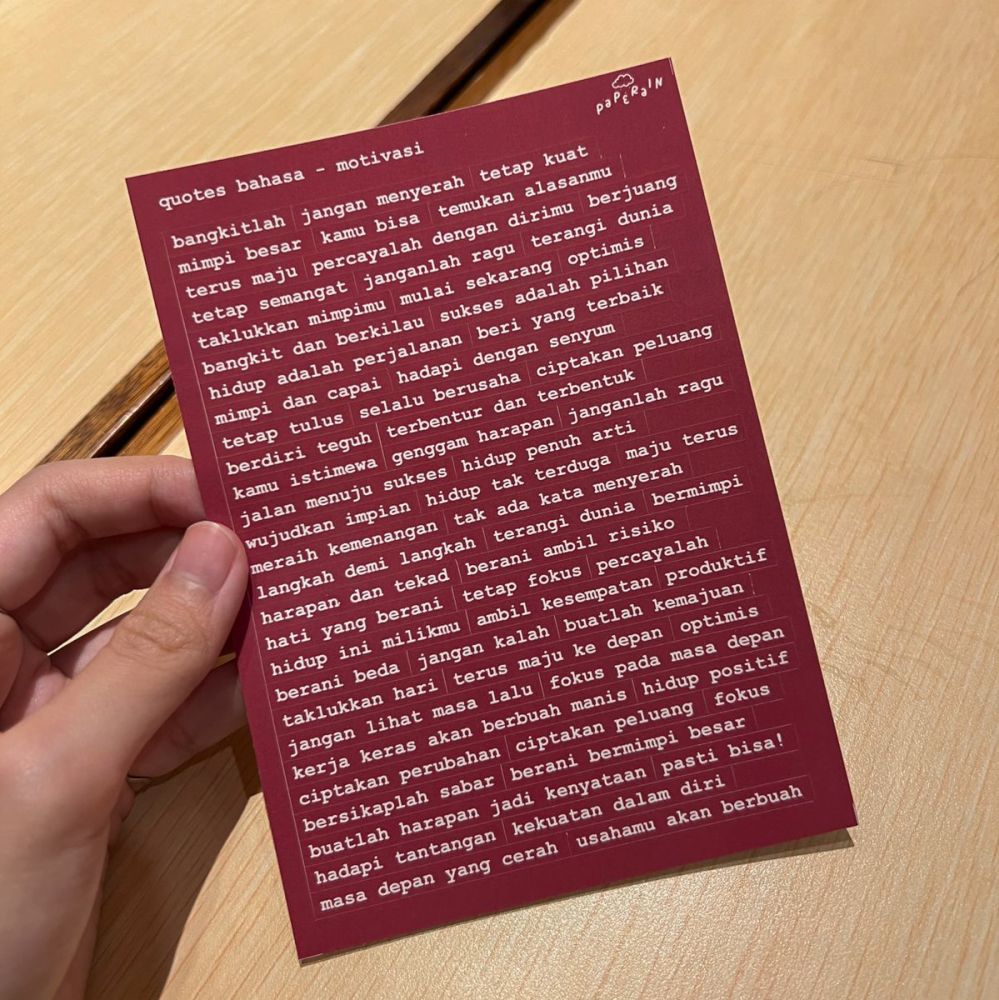 paperain
quotes bahasa - motivasi
bangkitlah jangan menyerah tetap kuat
mimpi besar kamu bisa temukan alasanmu
terus maju percayalah dengan dirimu berjuang
tetap semangat janganlah ragu terangi dunia
taklukkan mimpimu mulai sekarang optimis
bangkit dan berkilau sukses adalah pilihan
hidup adalah perjalanan beri yang terbaik
mimpi dan capai hadapi dengan senyum
tetap tulus selalu berusaha ciptakan peluang
berdiri teguh terbentur dan terbentuk
kamu istimewa genggam harapan janganlah ragu
jalan menuju sukses hidup penuh arti
wujudkan impian hidup tak terduga maju terus
meraih kemenangan tak ada kata menyerah
langkah demi langkah terangi dunia bermimpi
harapan dan tekad berani ambil risiko
hati yang berani tetap fokus percayalah
hidup ini milikmu ambil kesempatan produktif
berani beda jangan kalah buatlah kemajuan
taklukkan hari terus maju ke depan optimis
jangan lihat masa lalu fokus pada masa depan
kerja keras akan berbuah manis hidup positif
ciptakan perubahan ciptakan peluang fokus
bersikaplah sabar berani bermimpi besar
buatlah harapan jadi kenyataan pasti bisa!
hadapi tantangan kekuatan dalam diri
masa depan yang cerah usahamu akan berbuah